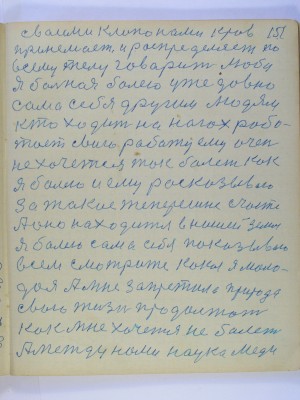 своими клопонами кров 151
принемает и роспределяет по
всему телу говарит Люба
я больная болею уже довно
сама себя другим людям
кто ходит на ногах рабо-
тает свою работу ему очен
не хочется так болет как
я болею и ему росказываю
за такое теперешне счастя
А оно находится в нашей Земли
я болею сама себя показываю
всем смотрите кокая я моло-
дая А мне запретила природа
свою жизн продолжат
как мне хочется не болет
А между нами наука меди